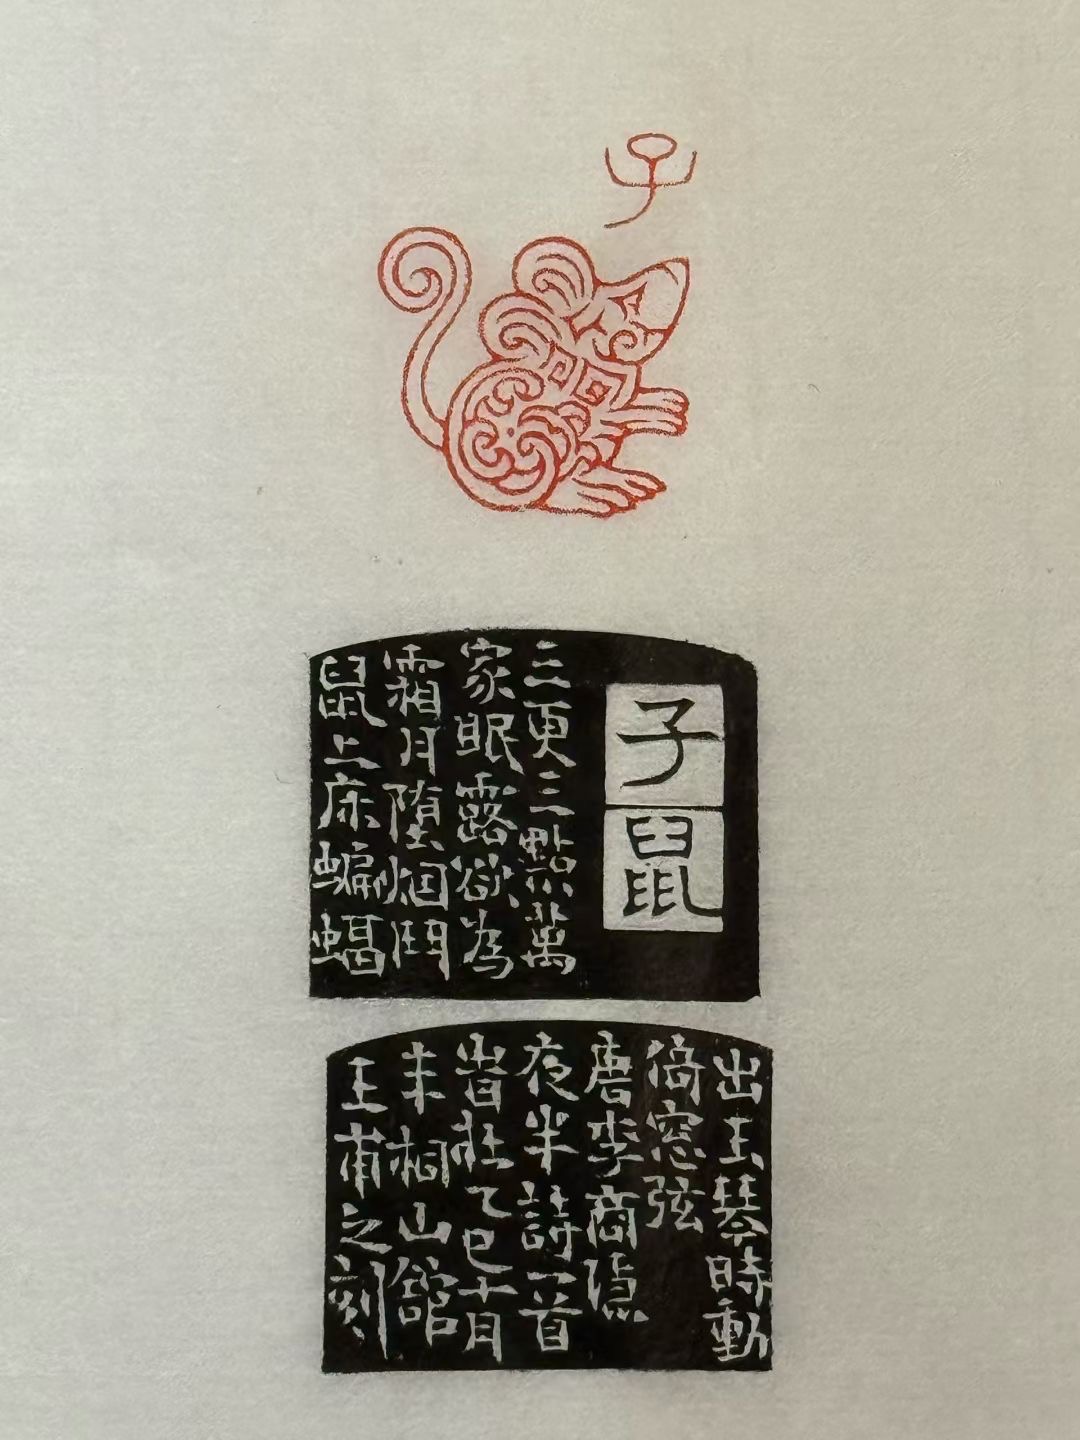 子
子鼠
三更三點萬
家眠露欲為
霜月墮烟鬥
鼠上床蝙蝠
出玉琴時動
倚窓弦
唐李商隱
夜半詩一首
旹在乙巳十月
山館
王甫之刻